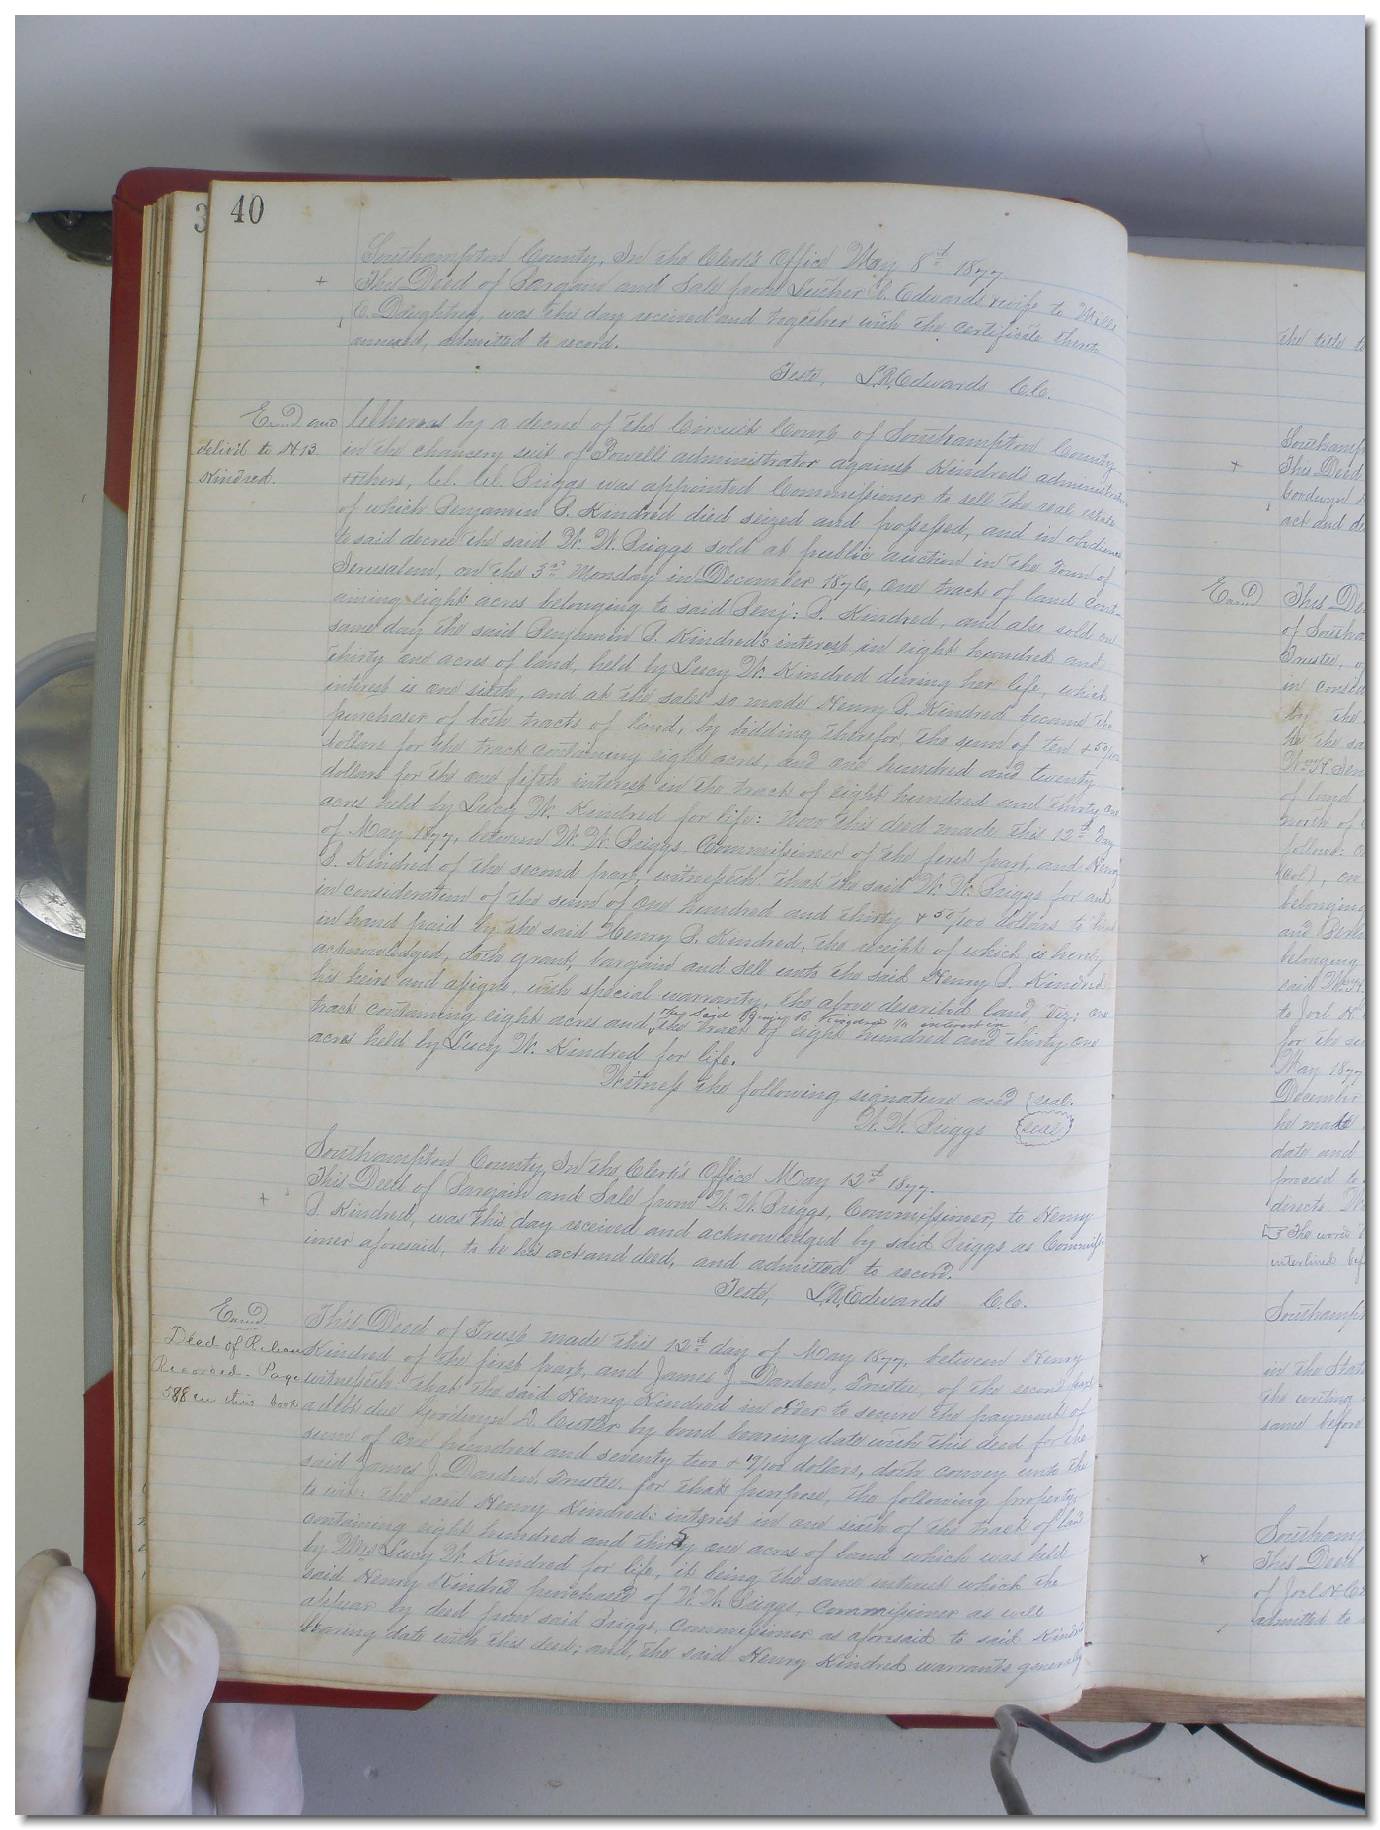 40
Southampton County, In the Clerk's Office May 8th 1877.
This Deed of Bargain and Sale from Luther Edwards & wife to Mills
E. Daughtrey, was this day received and together with the certificate thereto
annexed, admitted to record.
Teste, L.R. Edwards C.C.
Ex..D and
deliv'd to H B
Kindred.
Whereas by a decree of the Circuit Court of Southampton County
in the chancery suit of Powell's administrator against Kindred's administrator
others, W. W. Briggs was appointed Commissioner to sell the real estate
of which Benjamin B. Kindred died seized and possessed, and in obedience
to said decree the said W. W. Briggs sold at public auction in the Town of
Jerusalem, on the 3rd Monday in December 1876, one tract of land cont-
aining eight acres belonging to said Benj: B. Kindred, and also sold on
same day the said Benjamin B. Kindred's interest in eight hundred and
thirty one acres of land, held by Lucy W. Kindred during her life, which
interest is one sixth, and at the sales so made Henry B. Kindred became the
purchaser of both tracts of land, by bidding therefor, the sum of ten & 50/100
dollars for the tract containing eight acres, and one hundred and twenty
dollars for the one fifth interest in the tract of eight hundred and thirty one
acres held by Lucy W. Kindred for life: Now this deed made this 12th day
of May 1877, between W. W. Briggs Commissioner of the first part, and Henry
B. Kindred of the second part, witnesseth: that the said W. W. Briggs for and
in consideration of the sum of one hundred and thirty & 50/100 dollars to him
in hand paid by the said Henry B. Kindred, the receipt of which is hereby
acknowledged, doth grant, bargain and sell unto the said Henry B. Kindred
his heirs and assigns, with special warranty, the above described land, viz: one
the said Benj. B. Kindred's interest in
tract containing eight acres and the tract of eight hundred and thirty one
acres held by Lucy W. Kindred for life.
Witness the following signature and seal.
W. W. Briggs seal
Southampton County, In the Clerk's Office May 12th 1877.
This Deed of Bargain and Sale from W. W. Briggs, Commissioner, to Henry
B. Kindred, was this day received and acknowledged by said Briggs as Commiss
ioner aforesaid, to be his act and deed, and admitted to record.
Teste, L.R. Edwards C.C.
Exmd
Deed of Release
Recorded - Page
588 in this book
This Deed of Trust made this 12th day of May 1877, between Henry
Kindred of the first part, and James J. Darden, Trustee, of the second part
witnesseth: that the said Henry Kindred in order to secure the payment of
a debt due Goodwyn by bond bearing date with this deed for the
sum of one hundred and seventy two & /100 dollars, doth convey unto the
said James J. Darden, Trustee, for that purpose, the following property,
to wit: the said Henry Kindred's interest in one sixth of the tract of land
containing eight hundred and thirty one acres of land which was held
by Mrs Lucy W. Kindred for life, it being the same interest which the
said Henry Kindred purchased of W. W. Briggs, Commissioner as will
appear by deed from said Briggs, Commissioner as aforesaid to said Kindred
bearing date with this deed; and, the said Henry Kindred warrants generally
the title to
Southamp
This Deed
act and de
Exmd
This De
of Southa
Trustee, o
in consid
by the
he the sa
of land
north of
follows:
belonging
and
belonging
said
to Joel N
for the su
May 1877
December
he made
date and
proceed to
directs
The words
interlined bef
Southamp
in the State
the writing
same before
Southamp
This Deed
of Joel N.
admitted to